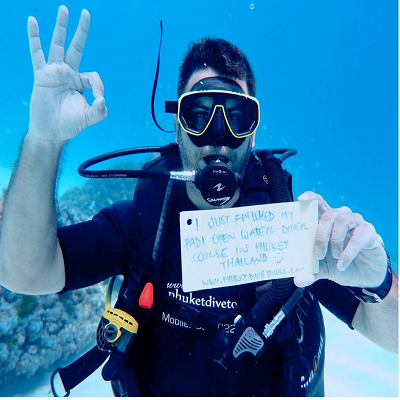 I JUST FINISHED MY
PADI OPEN WATER DIVER
COURSE IN PHUKET
THAILAND :)
WWW.PHUKETDIVETOURS.COM
www.
phuketdiveto
Mobile:
22